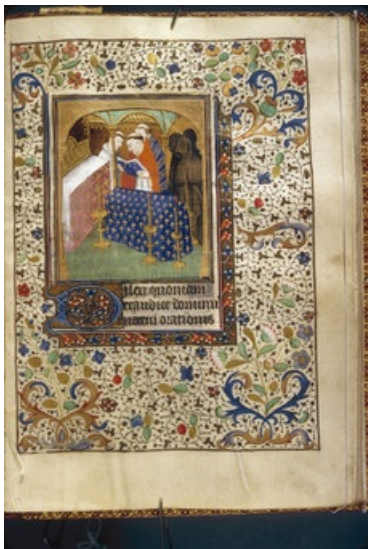 Dilexi quoniam
exaudiet dominus
vocem orationis